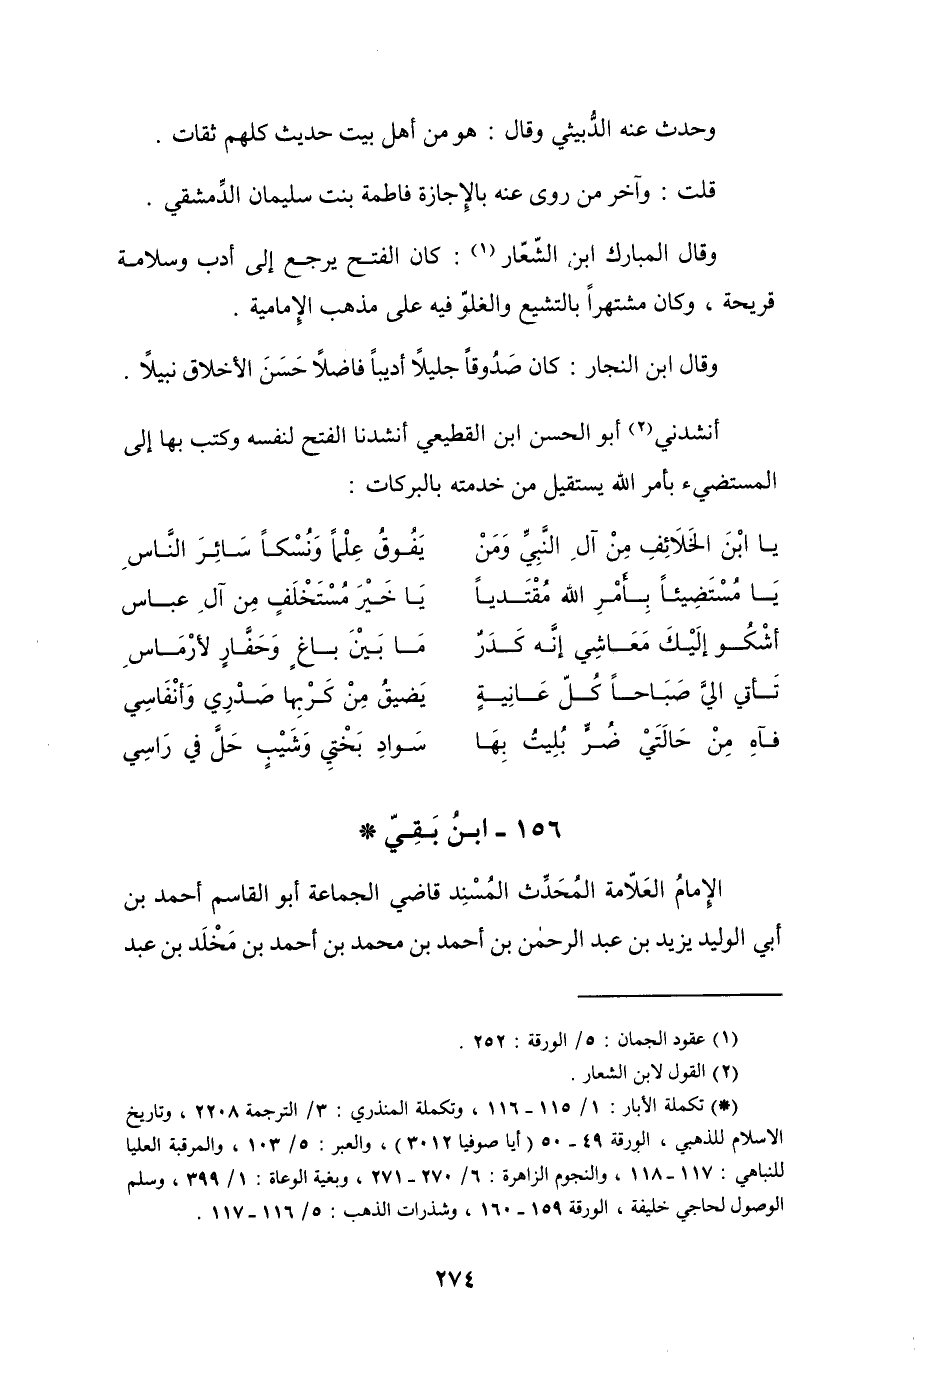 وحدث عنه الدُّبيثي وقال : هو من أهل بيت حديث كلهم ثقات .
قلت : وآخر من روى عنه بالإجازة فاطمة بنت سليمان الدِّمشقي .
وقال المبارك ابن الشّعّار (١) : كان الفتح يرجع إلى أدب وسلامة
قريحة ، وكان مشتهراً بالتشيع والغلوّ فيه على مذهب الإمامية .
وقال ابن النجار : كان صَدُوقاً جليلاً أديباً فاضلاً حَسَنَ الأخلاق نبيلاً .
أنشدني(٢) أبو الحسن ابن القطيعي أنشدنا الفتح لنفسه وكتب بها إلى
المستضيء بأمر الله يستقيل من خدمته بالبركات :
يا ابْنَ الخَلَائِفِ مِنْ آلِ النَّبِيِّ وَمَنْ يَفُوقُ عِلْماً وَنُسْكاً سَائِرَ النَّاسِ
يَا مُسْتَضِيئاً بِأَمْرِ الله مُقْتَدياً يَا خَيْرَ مُسْتَخْلَفٍ مِن آلِ عباس
أشْكُو إلَيْكَ مَعَاشِي إنَّه كَدَرٌ مَا بَيْنَ باغٍ وَحَفَّارٍ لأرْمَاسِ
تَأتي اليَّ صَبَاحاً كُلّ عَانِيةٍ يَضيقُ مِنْ كَرْبِها صَدْرِي وَأنْفَاسِي
فَآهِ مِنْ حَالَتَيْ ضُرٍّ بُلِيتُ بِهَا سَوادِ بَخْتِي وَشَيْبٍ حَلَّ في رَاسِي
١٥٦ - ابنُ بَقِيّ *
الإمامُ العَلاّمة المُحَدِّث المُسْنِد قاضي الجماعة أبو القاسم أحمد بن
أبي الوليد يزيد بن عبد الرحمٰن بن أحمد بن محمد بن أحمد بن مَخْلَد بن عبد
(١) عقود الجمان : ٥/ الورقة : ٢٥٢ .
(٢) القول لابن الشعار .
(*) تكملة الأبار : ١/ ١١٥ - ١١٦ ، وتكملة المنذري : ٣/ الترجمة ٢٢٠٨ ، وتاريخ
الاسلام للذهبي ، الورقة ٤٩ - ٥٠ (أيا صوفيا ٣٠١٢) ، والعبر : ٥/ ١٠٣ ، والمرقبة العليا
للنباهي : ١١٧ - ١١٨ ، والنجوم الزاهرة : ٦/ ٢٧٠ - ٢٧١ ، وبغية الوعاة : ١/ ٣٩٩ ، وسلم
الوصول لحاجي خليفة ، الورقة ١٥٩ - ١٦٠ ، وشذرات الذهب : ٥/ ١١٦ - ١١٧ .
٢٧٤